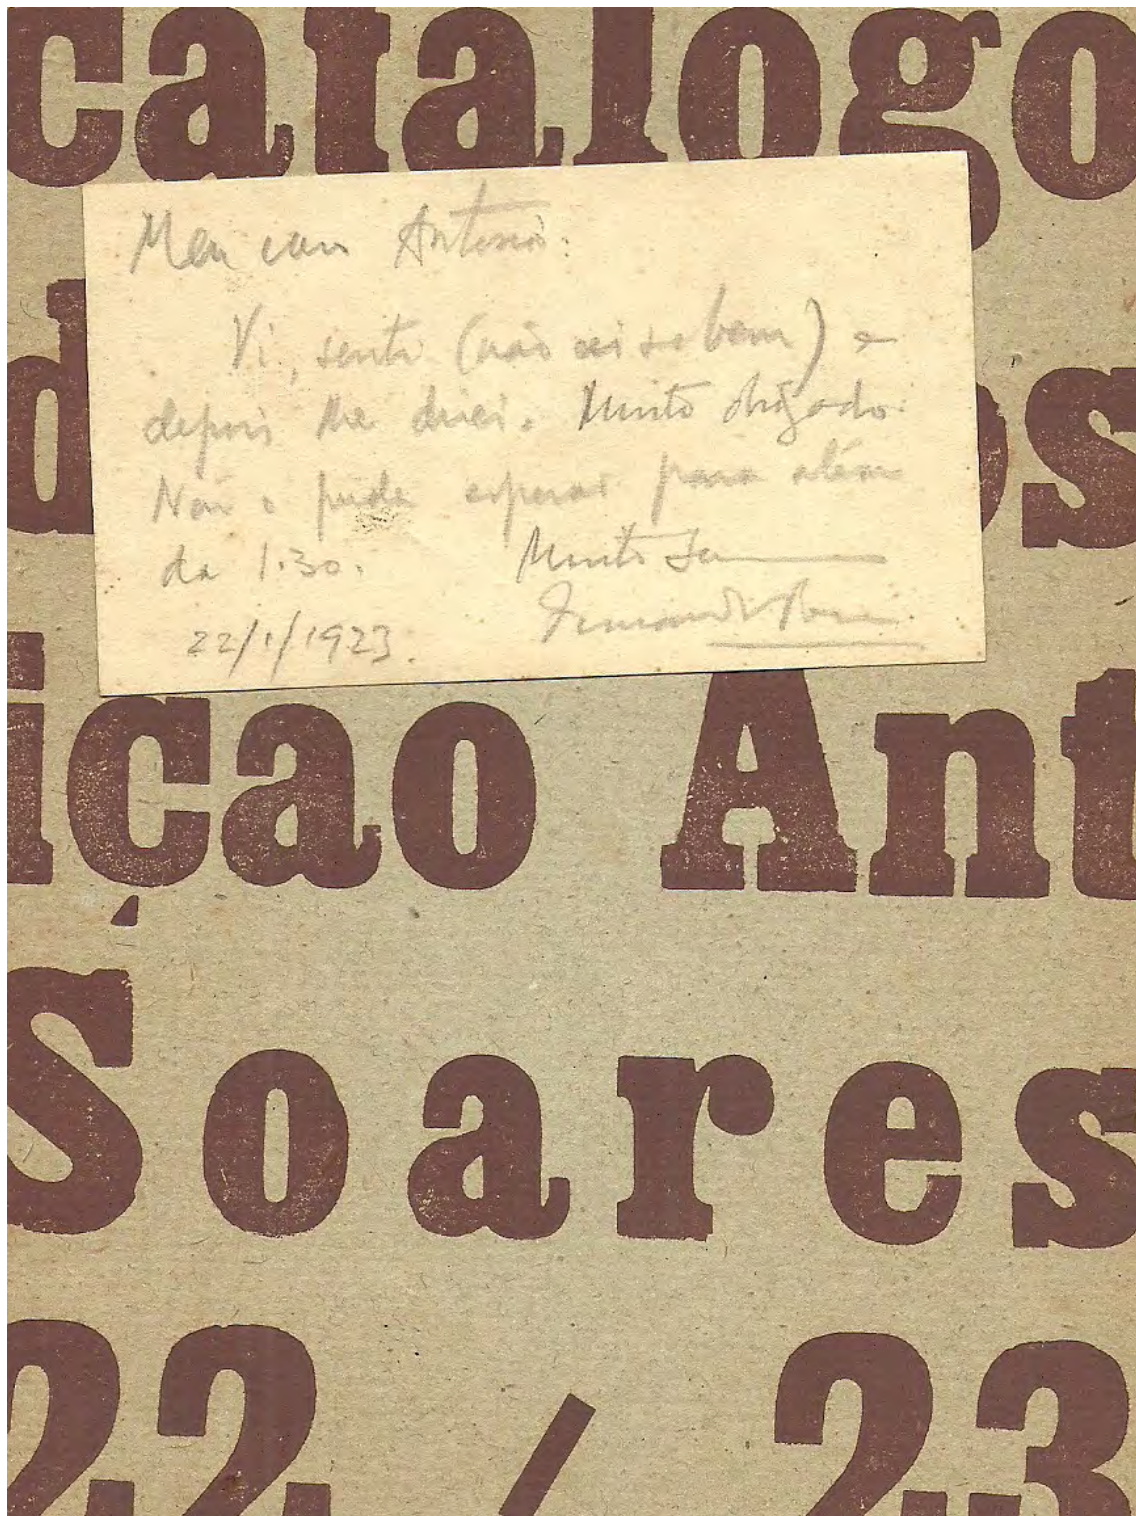 catalogo
Meu caro Antonio:
Vi, senti (não sei se bem) e
depois lhe direi. Muito obrigado.
Não pude esperar para além
da 1.30. Muito seu
22/1/1923. Fernando Pessoa
d os
ição Ant
Soares
22 / 23